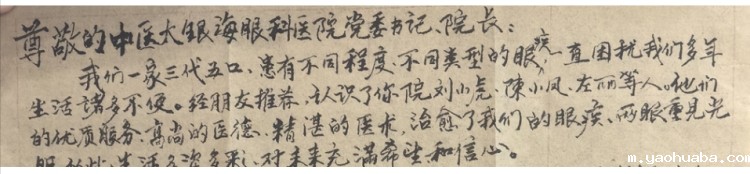 尊敬的中医大银海眼科医院党委书记、院长:
我们一家三代五口、患有不同程度、不同类型的眼疾,一直困扰我们多年
生活诸多不便。经朋友推荐、认识了你院刘小虎、陳小凤、左丽等人。他们
的优质服务、高尚的医德、精湛的医术,治愈了我们的眼疾、两眼重见光
生活多姿多彩,对未来充满希望和信心。
m.yaohuaba.com